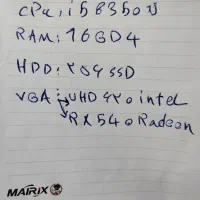 CPU: i5 8350U
RAM: 16GD4
HDD: ۲۵۶ SSD
VGA: UHD ۶۲۰ intel
RX 540 Radeon
MATRIX